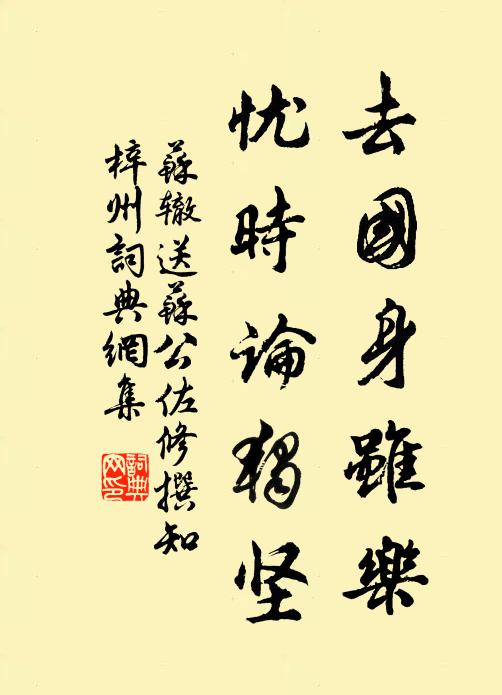 去國身雖樂
忧時論獨坚
蘇辙送蘇公佐修撰知
梓州詞典網集
詞典网印